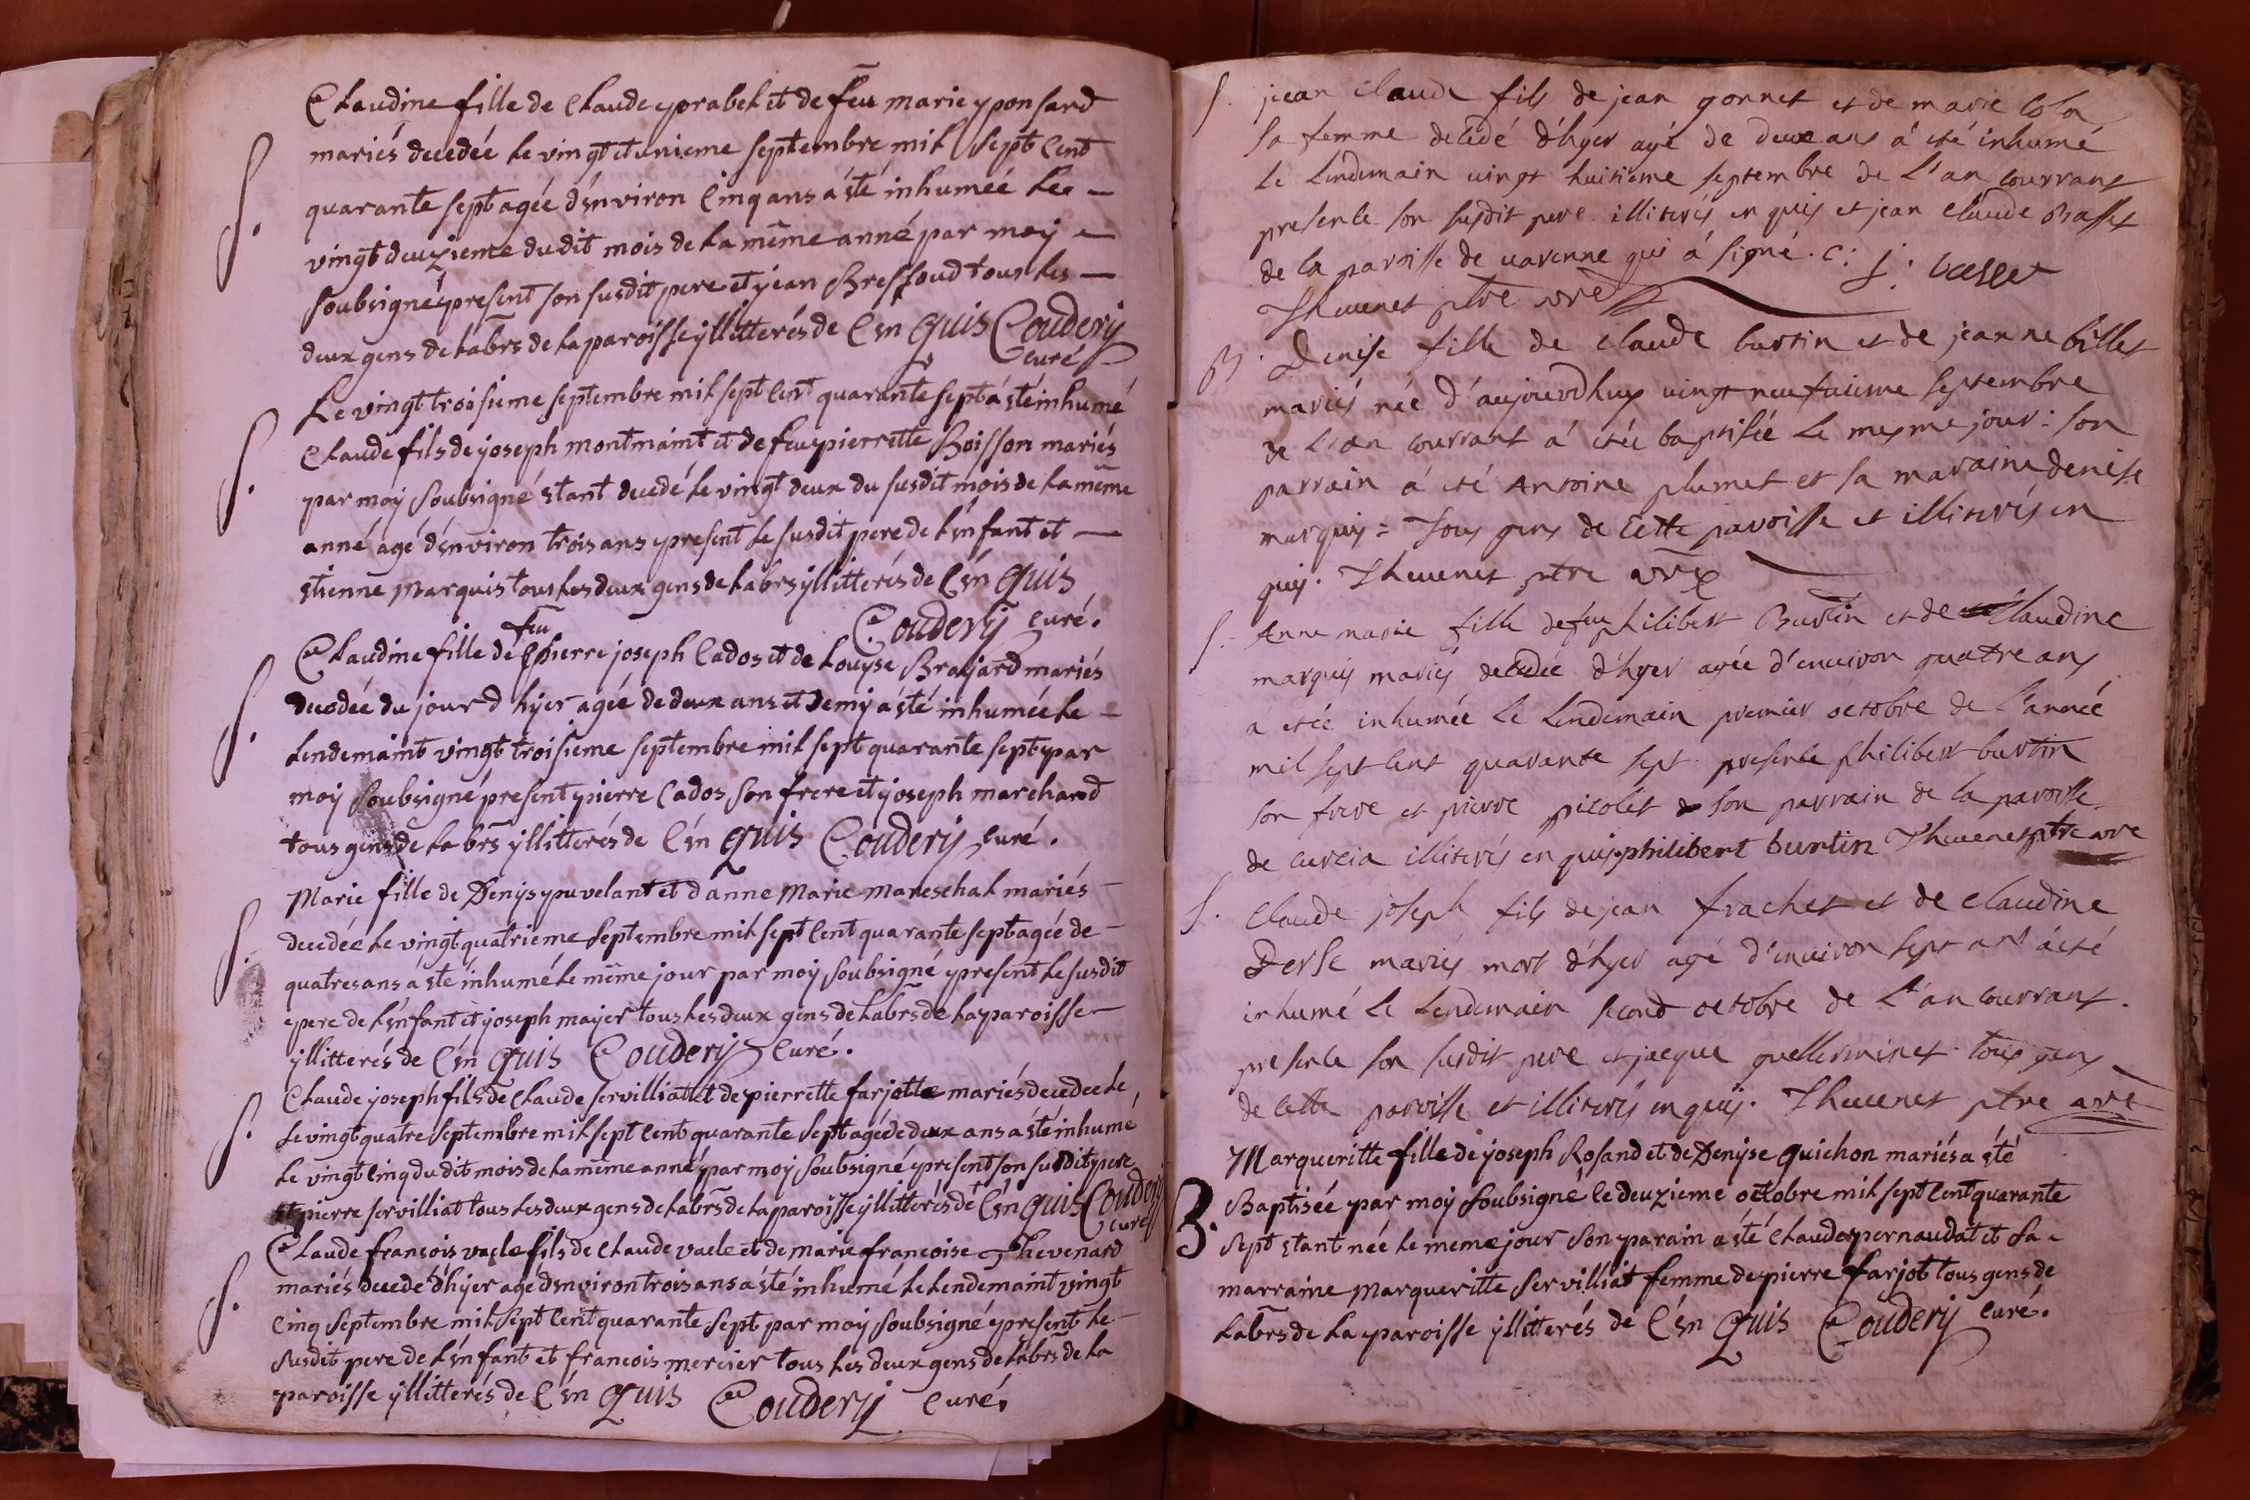 S.
Claudine fille de Claude prabel et de feu marie ponsard
mariés decedéé le vingt et unieme septembre mil sept cent
quarante sept agéé d'environ cinq ans a été inhuméé le
vingt deuzieme du dit mois de la même anné par moy
soubsigné present son susdit pere et jean Bressoud tous les
deux gens de labrs de la paroisse yllitterés de l'én quis Coudery
curé
S.
Le vingt troisieme septembre mil sept cent quarante sept á été inhumé
Claude fils de joseph montmaint et de feu pierrette Boisson mariés
par moy soubsigné étant decedé le vingt deux du susdit mois de la même
anné agé d'environ trois ans present le susdit pere de l'énfant et
étienne marquis tous les deux gens de labrs yllitterés de l'én quis
Coudery curé.
S.
Claudine fille de feu pierre joseph Cados et de Louyse Brajard mariés
decedée du jour d'hyer agéé de deux ans et demy á été inhuméé le
lendemaint vingt troisieme septembre mil sept quarante sept par
moy soubsigné present pierre Cados son frere et joseph marchand
tous gens de labrs yllitterés de l'én quis Coudery curé.
S.
Marie fille de Denys puvelant et d'anne Marie mareschal mariés
decedéé le vingt quatrieme septembre mil sept cent quarante sept agéé de
quatres ans á été inhumé le même jour par moy soubsigné present le susdit
pere de l'énfant et joseph mayer tous les deux gens de labrs de la paroisse
yllitterés de l'én quis Coudery curé.
S.
Claude joseph fils de Claude servilliat et de pierrette farjotte mariés decedeé le
le vingt quatre septembre mil sept cent quarante sept agé de deux ans á été inhumé
le vingt cinq du dit mois de la même anné par moy soubsigné present son susdit pere
et pierre servilliat tous les deux gens de labrs de la paroisse yllitterés de l'én quis Coudery
curé
S.
Claude françois vacle fils de Claude vacle et de marie françoise Thevenard
mariés decedé d'hyer agé d'environ trois ans á été inhumé le lendemaint vingt
cinq septembre mil sept cent quarante sept par moy soubsigné present le
susdit pere de l'énfant et francois mercier tous les deux gens de labrs de la
paroisse yllitterés de l'én quis Coudery curé.
S.
jean claude fils de jean gonnet et de marie cola
sa femme decedé d'hyer agé de deux ans á été inhumé
le lendemain vingt huitieme septembre de l'an courrant
presence son susdit pere illiterés en quis et jean claude Basset
de la paroisse de varenne qui á signé. c: j: basset
Thevenet ptre vre
B.
Denise fille de claude burtin et de jeanne billet
mariés née d'aujourdhuy vingt neufvieme septembre
de l'an courrant á étée baptisée le mesme jour: son
parrain á été Antoine plumet et sa maraine denise
marquis = tous gens de cette paroisse et illiterés en
quis. Thevenet ptre vre
S.
Anne marie fille de feu philibert Burtin et de claudine
marquis mariés decedée d'hyer agée d'environ quatre ans
a étée inhumée le lendemain premier octobre de l'année
mil sept cent quarante sept. presence philibert burtin
son frere et pierre picolet son parrain de la paroisse
de curcia illiterés en quis. philibert burtin Thevenet ptre vre
S.
Claude joseph fils de jean frachet et de claudine
Derse mariés mort d'hyer agé d'environ sept ans á été
inhumé le lendemain second octobre de l'an courrant.
presence son susdit pere et jacque guelleminet tous gens
de cette paroisse et illiterés en quis. Thevenet ptre vre
B.
Margueritte fille de joseph Rosand et de Denyse guichon mariés a été
Baptisée par moy soubsigné le deuzieme octobre mil sept cent quarante
sept étant née le meme jour son parain a été Claude pernaudat et sa
marraine margueritte servilliat femme de pierre farjot tous gens de
labrs de la paroisse yllitterés de l'én quis Coudery curé.